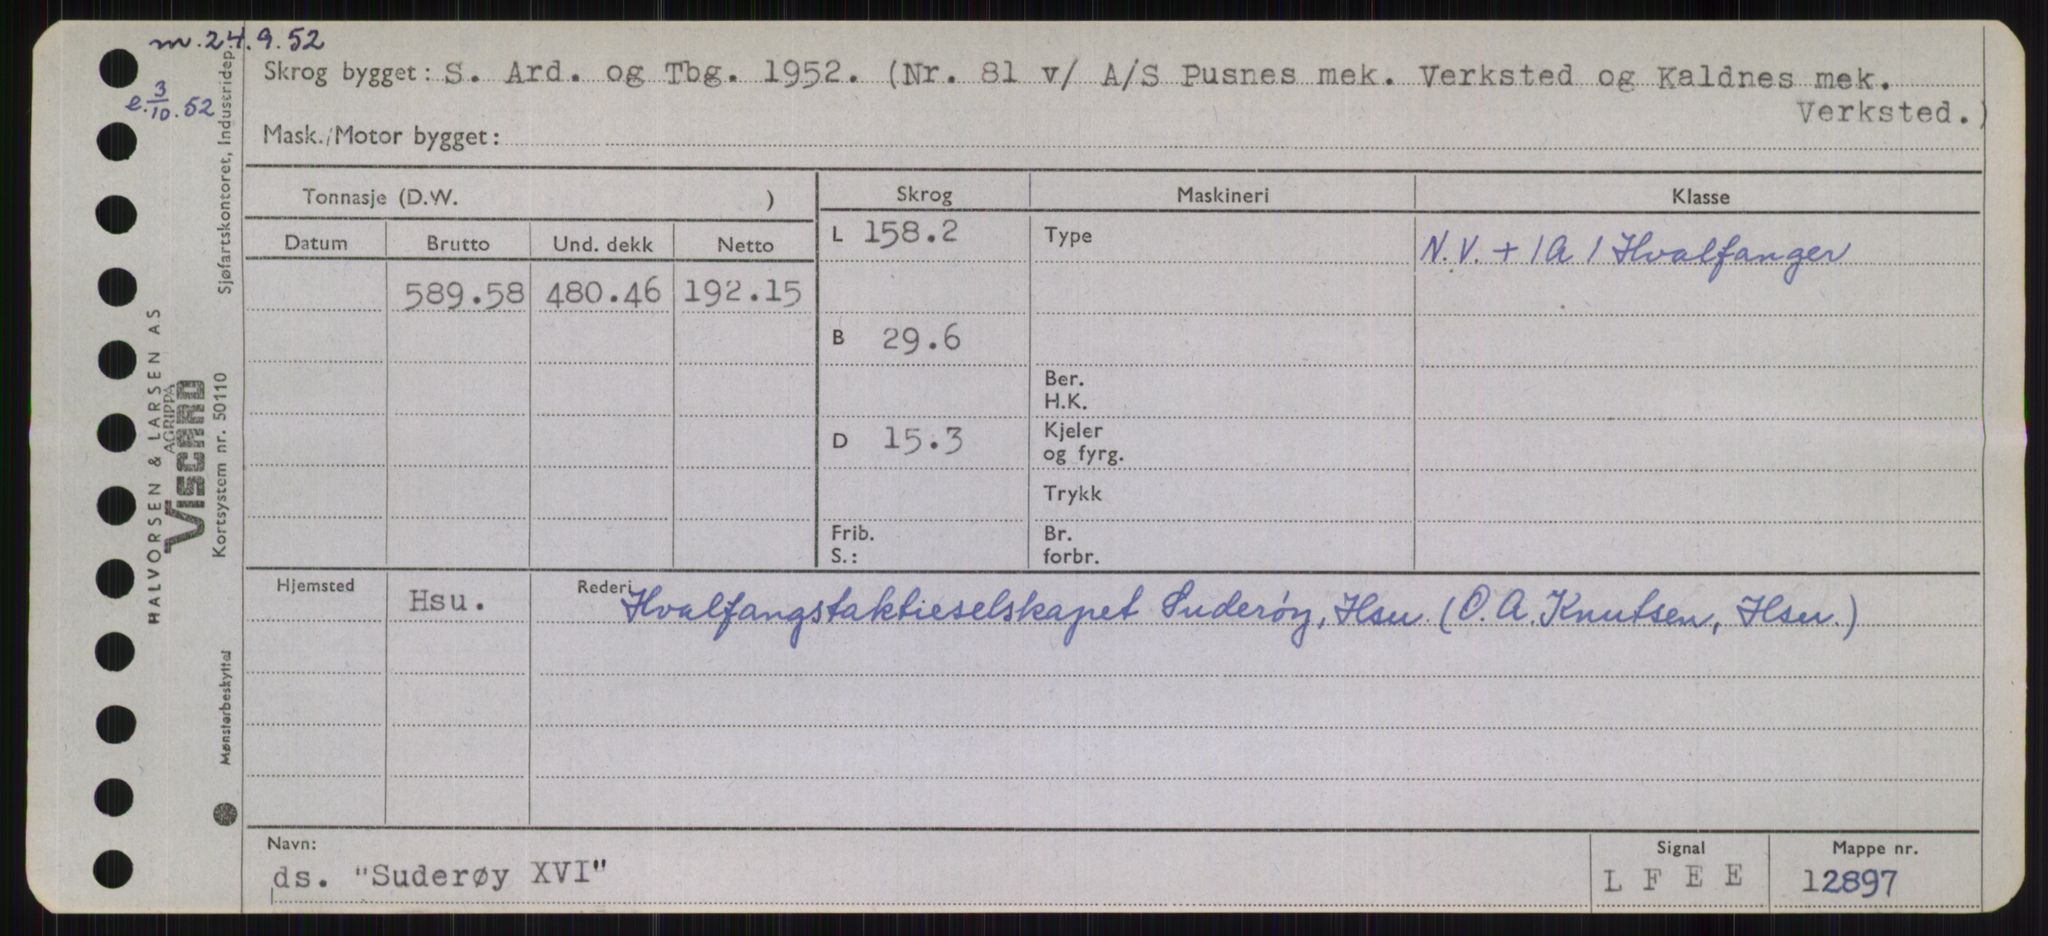 m. 24.9.52
e. 3/10.52
Skrog bygget: S. Ard. og Tbg. 1952. (Nr. 81 v/ A/S Pusnes mek. Verksted og Kaldnes mek.
Verksted.)
Mask./Motor bygget:
Tonnasje (D.W. )
Skrog Maskineri Klasse
Datum Brutto Und. dekk Netto
L 158.2 Type N.V. + 1A 1 Hvalfanger
589.58 480.46 192.15
B 29.6
Ber.
H.K.
D 15.3 Kjeler
og fyrg.
Trykk
Frib. Br.
S.: forbr.
Hjemsted Hsu. Rederi Hvalfangstaktieselskapet Suderøy, Hsu (O. A. Knutsen, Hsu.)
Navn: Signal Mappe nr.
ds. "Suderøy XVI" L F E E 12897
HALVORSEN & LARSEN AS
AGRIPPA
VISCARD
Kortsystem nr. 50110
Sjøfartskontoret, Industridep.
Mønsterbeskyttet